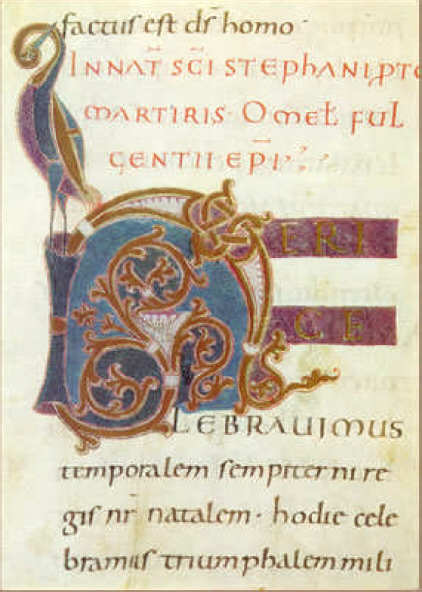 factus est ds homo
IN NAT SCI STEPHANI PTO
MARTIRIS · OMEL FUL
GENTII EPI
HERI
CE
LEBRAVIMUS
temporalem sempiterni re
gis nr natalem · hodie cele
bramus triumphalem mili